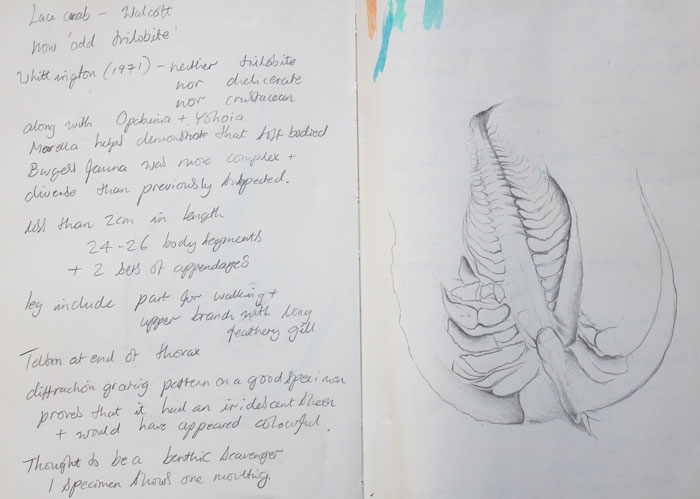 Lace crab – Walcott
now 'odd trilobite'
Whittington (1971) – neither trilobite
nor chelicerate
nor crustacean
along with Opabinia + Yohoia
Marella helps demonstrate that soft bodied
Burgess fauna was more complex +
diverse than previously suspected.
less than 2cm in length
24-26 body segments
+ 2 sets of appendages
leg include part for walking +
upper branch with long
feathery gill
Telson at end of thorax
diffraction grating pattern on a good specimen
proves that it had an iridescent sheen
+ would have appeared colourful.
Thought to be a benthic scavenger.
1 specimen shows one moulting.